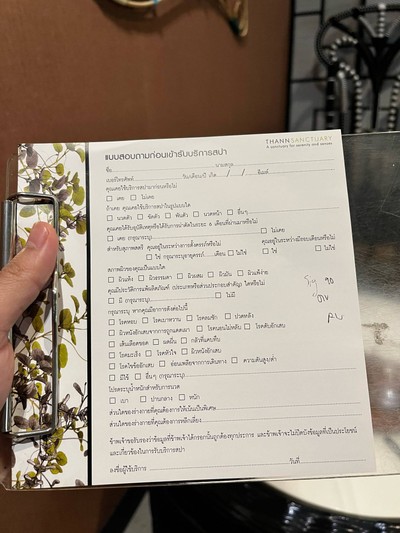 THANN SANCTUARY
A sanctuary for serenity and senses
แบบสอบถามก่อนเข้ารับบริการสปา
ชื่อ นามสกุล
เบอร์โทรศัพท์ วันเดือนปี เกิด / / อีเมล์
คุณเคยใช้บริการสปามาก่อนหรือไม่
เคย ไม่เคย
ถ้าเคย คุณเคยใช้บริการสปาในรูปแบบใด
นวดตัว ขัดตัว พันตัว นวดหน้า อื่นๆ
คุณเคยได้รับอุบัติเหตุหรือได้รับการผ่าตัดในระยะ 6 เดือนที่ผ่านมาหรือไม่
เคย (กรุณาระบุ) ไม่เคย
สำหรับสุภาพสตรี คุณอยู่ในระหว่างการตั้งครรภ์หรือไม่ คุณอยู่ในระหว่างมีรอบเดือนหรือไม่
ใช่ (กรุณาระบุอายุครรภ์) เดือน ไม่ใช่ ใช่ ไม่ใช่
สภาพผิวของคุณเป็นแบบใด
ผิวแห้ง ผิวธรรมดา ผิวผสม ผิวมัน ผิวแพ้ง่าย
คุณมีประวัติการแพ้ผลิตภัณฑ์ (ประเภทหรือส่วนประกอบสำคัญ) ใดหรือไม่
มี (กรุณาระบุ) ไม่มี
กรุณาระบุ หากคุณมีอาการดังต่อไปนี้
โรคหอบ โรคเบาหวาน โรคลมชัก ปวดหลัง
ผิวหนังอักเสบจากการถูกแดดเผา โรคนอนไม่หลับ โรคตับอักเสบ
เส้นเลือดขอด ผดผื่น กล้ามเนื้อตึงเจ็บ
โรคมะเร็ง โรคหัวใจ ผิวหนังอักเสบ
โรคไขข้ออักเสบ อ่อนเพลียจากการเดินทาง ความดันสูง/ต่ำ
มีไข้ อื่นๆ (กรุณาระบุ)
โปรดระบุน้ำหนักสำหรับการนวด
เบา ปานกลาง หนัก
ส่วนใดของร่างกายที่คุณต้องการให้เน้นเป็นพิเศษ
ส่วนใดของร่างกายที่คุณต้องการหลีกเลี่ยง
ข้าพเจ้าขอรับรองว่าข้อมูลที่ข้าพเจ้าได้กรอกนั้นถูกต้องทุกประการ และข้าพเจ้าจะไม่ปิดบังข้อมูลที่เป็นประโยชน์
และเกี่ยวข้องในการรับบริการสปา
ลงชื่อผู้ใช้บริการ วันที่